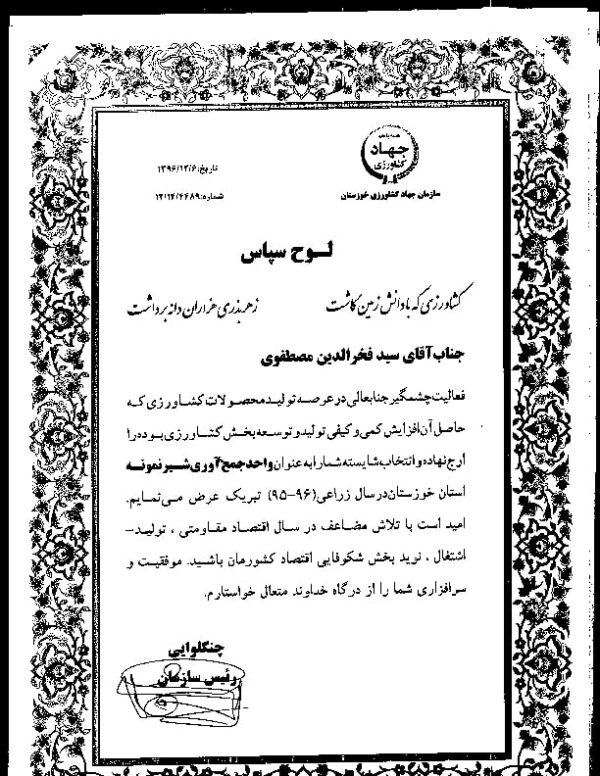 جهاد
کشاورزی
سازمان جهاد کشاورزی خوزستان
تاریخ: ۱۳۹۶/۱۲/۶
شماره: ۱۲/۱۴/۶۶۸۹
لوح سپاس
کشاورزی که با دانش زمین کاشت زهر بذری هزاران دانه برداشت
جناب آقای سید فخرالدین مصطفوی
فعالیت چشمگیر جنابعالی در عرصه تولید محصولات کشاورزی که
حاصل آن افزایش کمی و کیفی تولید و توسعه بخش کشاورزی بوده را
ارج نهاده و انتخاب شایسته شما را به عنوان واحد جمع آوری شیر نمونه
استان خوزستان در سال زراعی (۹۶-۹۵) تبریک عرض می نمایم.
امید است با تلاش مضاعف در سال اقتصاد مقاومتی ، تولید-
اشتغال ، نوید بخش شکوفایی اقتصاد کشورمان باشید. موفقیت و
سرافرازی شما را از درگاه خداوند متعال خواستارم.
چنگلوایی
رئیس سازمان